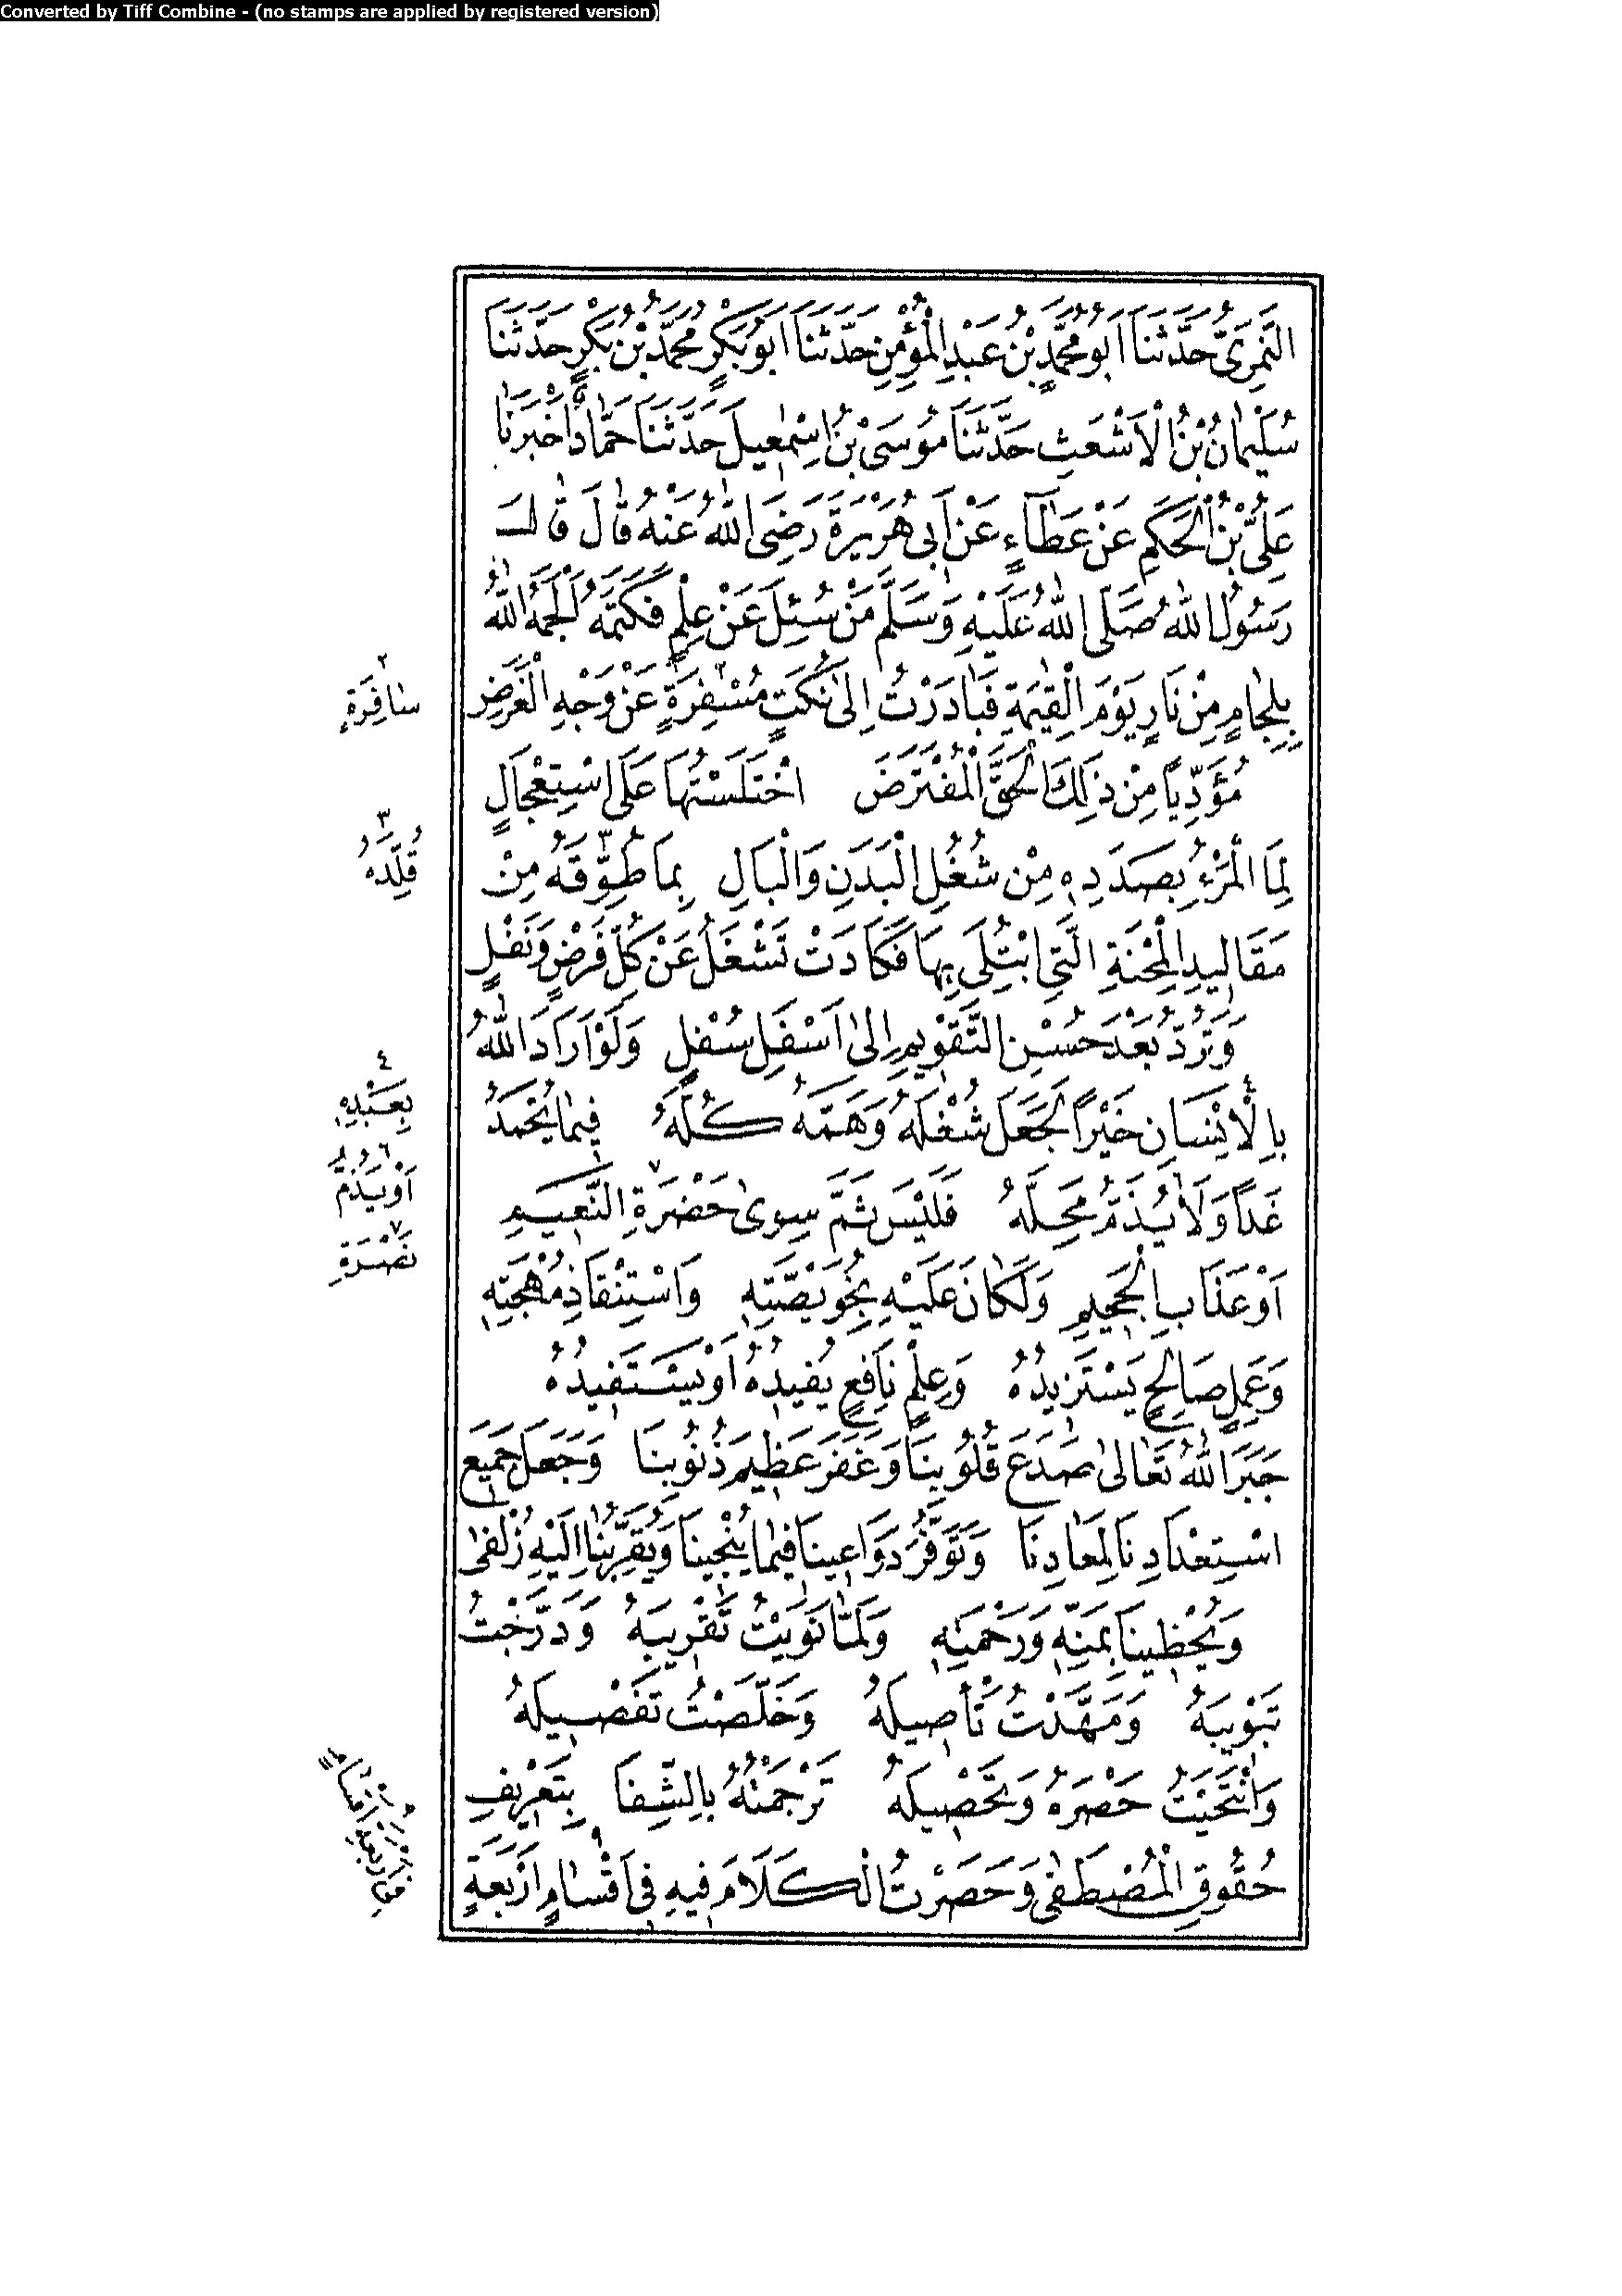 Converted by Tiff Combine - (no stamps are applied by registered version)
النَّمَرِىُّ حَدَّثَنَا اَبُو مُحَمَّدِ بْنُ عَبْدِ الْمُؤْمِنِ حَدَّثَنَا اَبُو بَكْرٍ مُحَمَّدُ بْنُ بَكْرٍ حَدَّثَنَا
سُلَيْمَانُ بْنُ الْاَشْعَثِ حَدَّثَنَا مُوسَى بْنُ اِسْمٰعِيلَ حَدَّثَنَا حَمَّادٌ اَخْبَرَنَا
عَلِىُّ بْنُ الْحَكَمِ عَنْ عَطَآءٍ عَنْ اَبِى هُرَيْرَةَ رَضِىَ اللّٰهُ عَنْهُ قَالَ قَالَ
رَسُولُ اللّٰهِ صَلَّى اللّٰهُ عَلَيْهِ وَسَلَّمَ مَنْ سُئِلَ عَنْ عِلْمٍ فَكَتَمَهُ اَلْجَمَهُ اللّٰهُ
بِلِجَامٍ مِنْ نَارٍ يَوْمَ الْقِيٰمَةِ فَبَادَرْتُ اِلٰى نُكَتٍ مُسْفِرَةٍ٢ عَنْ وَجْهِ الْغَرَضِ
٢
سَافِرَةٍ
مُؤَدِّيًا مِنْ ذٰلِكَ الْحَقَّ الْمُفْتَرَضَ اخْتَلَسْتُهَا عَلَى اسْتِعْجَالٍ
لِمَا الْمَرْءُ بِصَدَدِهِ مِنْ شُغُلِ الْبَدَنِ وَالْبَالِ بِمَا طُوِّقَهُ٣ مِنْ
٣
قُلِّدَهُ
مَقَالِيدِ الْمِحْنَةِ الَّتِى ابْتُلِىَ بِهَا فَكَادَتْ تَشْغَلُ عَنْ كُلِّ فَرْضٍ وَنَفْلٍ
وَتَرُدُّ بَعْدَ حُسْنِ التَّقْوِيمِ اِلٰى اَسْفَلِ سُفْلٍ وَلَوْ اَرَادَ اللّٰهُ
بِالْاِنْسَانِ٤ خَيْرًا لَجَعَلَ شُغْلَهُ وَهَمَّهُ كُلَّهُ فِيمَا يُحْمَدُ
٤
بِعَبْدِهِ
غَدًا وَلَا يُذَمُّ مَحِلُّهُ فَلَيْسَ ثَمَّ سِوٰى حَضْرَةِ٧ النَّعِيمِ
٦
اَوْ يُذَمُّ
٧
نَضْرَةِ
اَوْ عَذَابِ الْجَحِيمِ وَلَكَانَ عَلَيْهِ بِخُوَيْصَّتِهِ وَاسْتِنْقَاذِ مُهْجَتِهِ
وَعَمَلٍ صَالِحٍ يَسْتَزِيدُهُ وَعِلْمٍ نَافِعٍ يُفِيدُهُ اَوْ يَسْتَفِيدُهُ
جَبَرَ اللّٰهُ تَعَالٰى صَدْعَ قُلُوبِنَا وَغَفَرَ عَظِيمَ ذُنُوبِنَا وَجَعَلَ جَمِيعَ
اسْتِعْدَادِنَا لِمَعَادِنَا وَتَوَفُّرَ دَوَاعِينَا فِيمَا يُنْجِينَا وَيُقَرِّبُنَا اِلَيْهِ زُلْفٰى
وَيُحْظِينَا بِمَنِّهِ وَرَحْمَتِهِ وَلَمَّا نَوَيْتُ تَقْرِيبَهُ وَدَرَّجْتُ
تَبْوِيبَهُ وَمَهَّدْتُ تَأْصِيلَهُ وَخَلَّصْتُ تَفْصِيلَهُ
وَانْتَحَيْتُ حَصْرَهُ وَتَحْصِيلَهُ تَرْجَمْتُهُ بِالشِّفَا بِتَعْرِيفِ
حُقُوقِ الْمُصْطَفٰى وَحَصَرْتُ الْكَلَامَ فِيهِ فِى اَقْسَامٍ٩ اَرْبَعَةٍ
فِى اَرْبَعَةِ اَقْسَامٍ